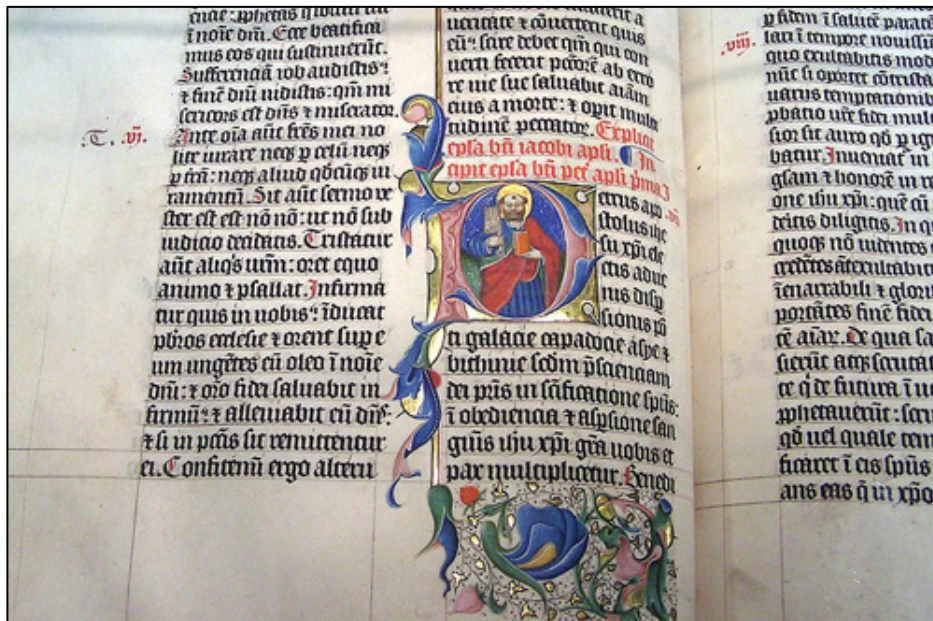 encie: pphetas q̄ locuti sūt
ī noīe dn̄i. Ecce beatifica
mus eos qui sustinuerūt.
Sufferenciā iob audistis:
⁊ finē dn̄i uidistis: qm̄ mi
sericors est dn̄s ⁊ miserator.
.T. .vj. Ante oīa aūt frēs mei no
lite iurare neqꝫ p celū neqꝫ
p trā: neqꝫ aliud qdcūqꝫ iu
ramentū. Sit autē sermo ve
ster est est nō nō: ut nō sub
iudicio decidatis. Tristatur
aūt aliqs vrm̄: oret equo
animo ⁊ psallat. Infirma
tur quis in uobis: īducat
pbr̄os ecclesie ⁊ orent sup e
um ungētes eū oleo ī noīe
dn̄i: ⁊ orō fidei saluabit in
firmū: ⁊ alleuiabit eū dn̄s:
⁊ si in pctīs sit remittentur
ei. Confitemī ergo alteru
ueritate ⁊ cōuerterit quis
eū: scire debet qm̄ qui con
uerti fecerit pctōrē ab erro
re uie sue saluabit aīam
eius a morte: ⁊ opit multi
tudinē peccatoꝝ. Explicit
epsa bt̄i iacobi apsti. In
cipit epsa bt̄i petʳ apsti pima
Petrus apo
stolus ihe
su xp̄i ele
ctis adue
nis disp
sionis pō
ti galacie capadocie asye ⁊
bithinie scdm̄ pscienciam
dei prīs in scīficatione spūs:
ī obediencia ⁊ aspsione san
guīs ihu xp̄i grā uobis et
pax multiplicetur. Benedi
p fidem ī salutē paratā
.viij. lari ī tempore nouissi
quo exultabitis mod
nūc si oportet cōtrista
uarijs temptationib
pbatio ure fidei mult
sior sit auro qd p ign
batur. Inueniat in l
gl̄am ⁊ honorē in re
one ihu xp̄i: quē cū
deritis diligitis. In qu
quoqꝫ nō uidentes
credētes āt exultabit
ī enarrabili ⁊ glorifi
portātes finē fidei
tē aīaꝝ. De qua sa
sierūt atqꝫ scrutat
te q de futura ī uo
pphetauerūt: scru
qd uel quale tem
ficaret ī eis spūs
ans eas q in xpō